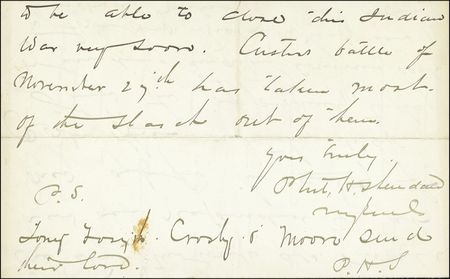 to be able to close this Indian
War very soon. Custers battle of
November 27th has taken most
of the starch out of them.
Yours truly,
Phil, H Sheridan
Maj Genl
P.S.
Tony Forsyth. Crosby & Moore send
their love.
P.H.S